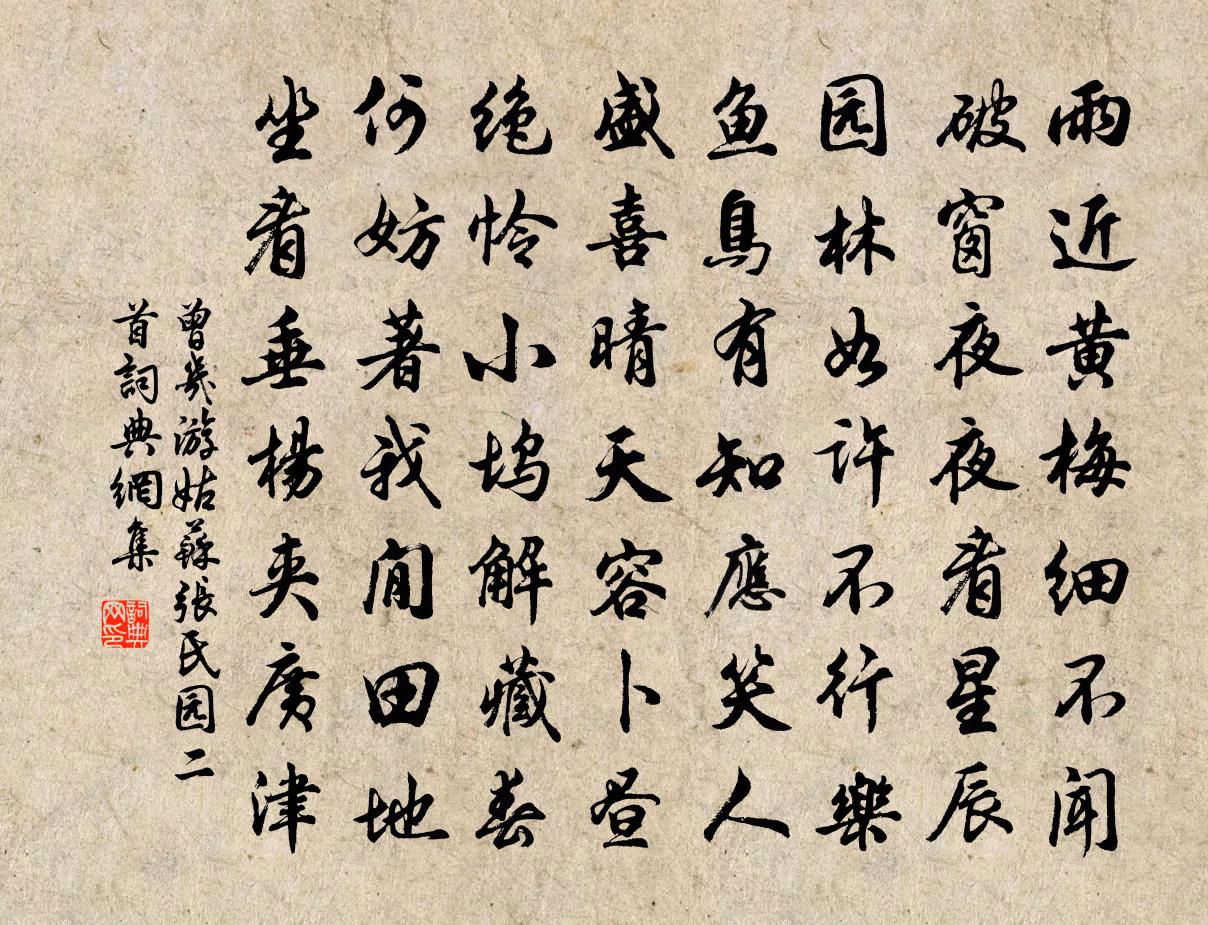 雨近黄梅细不闻
破窗夜夜看星辰
园林如许不行樂
鱼鳥有知應笑人
盛喜晴天容卜昼
绝怜小坞解藏春
何妨著我閒田地
坐看垂楊夹廣津
曾幾游姑蘇張氏园二
首詞典網集
詞典
网印